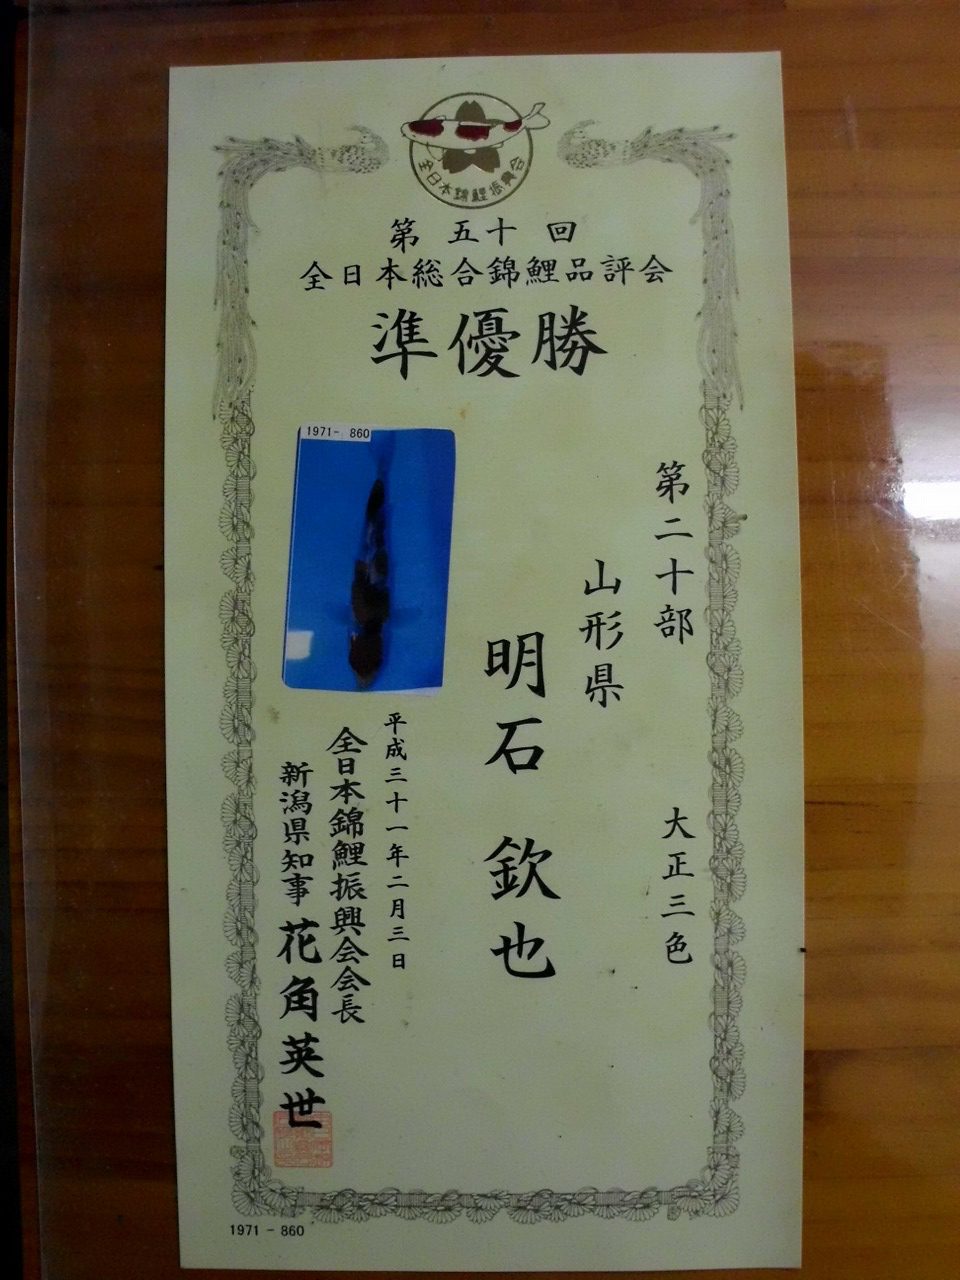 全日本錦鯉振興会
第 五十 回
全日本総合錦鯉品評会
準優勝
1971- 860
第二十部 大正三色
山形県
明石 欽也
平成三十一年二月三日
全日本錦鯉振興会会長
新潟県知事 花角英世
1971 - 860